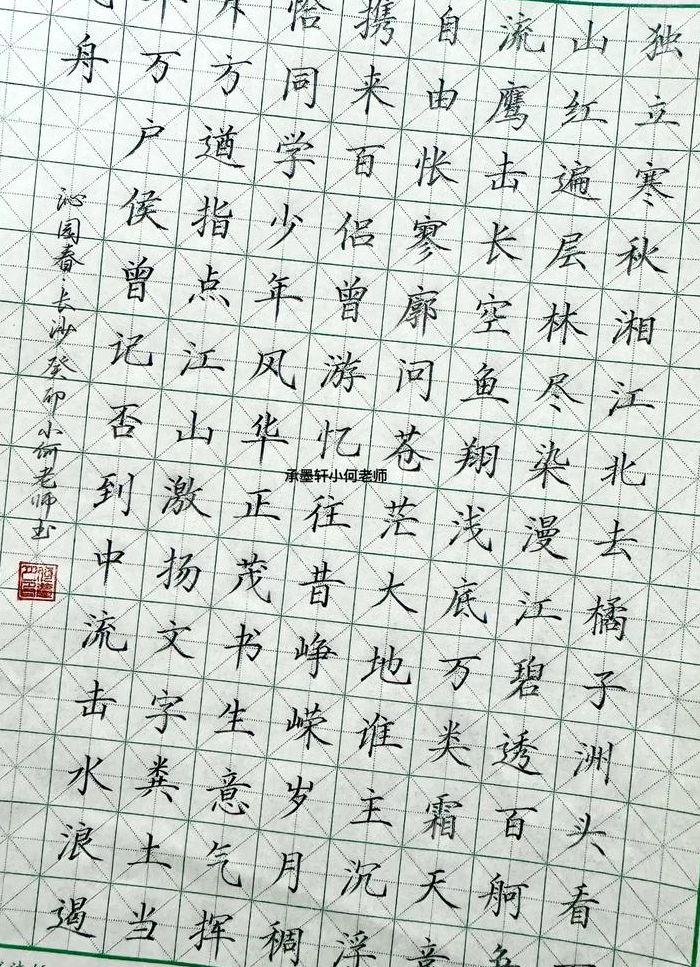 独立寒秋湘江北去橘子洲头看
山红遍层林尽染漫江碧透百舸
流鹰击长空鱼翔浅底万类霜天
自由怅寥廓问苍茫大地谁主沉浮
携来百侣曾游忆往昔峥嵘岁月稠
恰同学少年风华正茂书生意气挥
方遒指点江山激扬文字粪土当
万户侯曾记否到中流击水浪遏
舟
沁园春 长沙 癸卯小何老师书
承墨轩小何老师